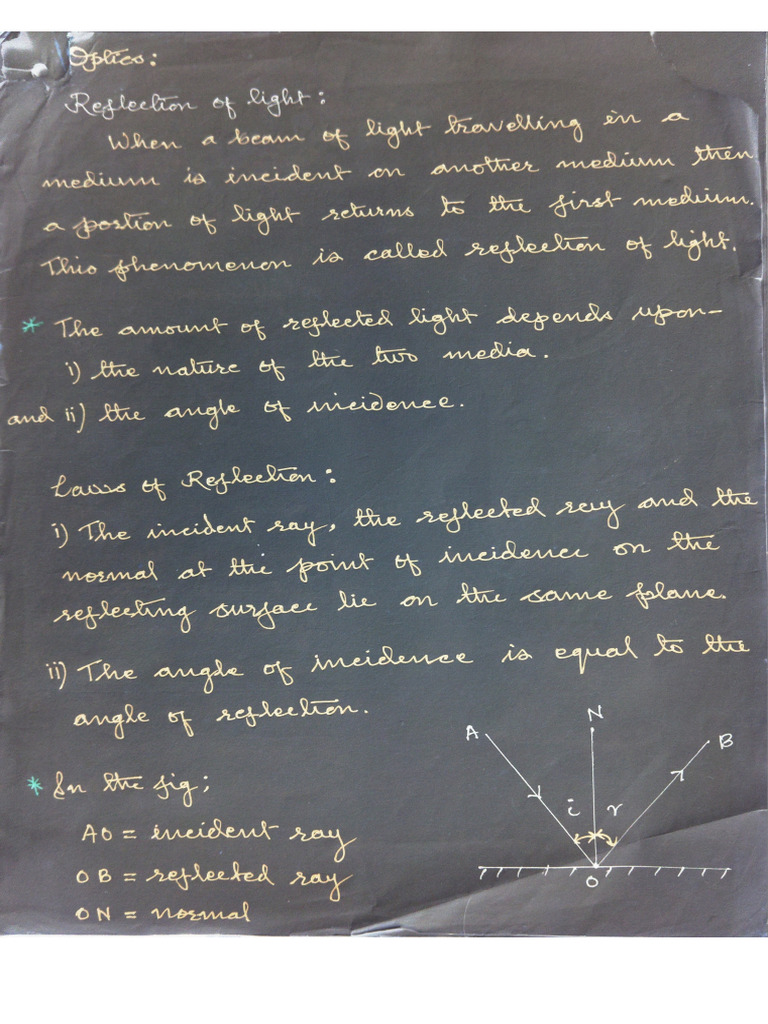 Optics:
Reflection of light:
When a beam of light travelling in a
medium is incident on another medium then
a portion of light returns to the first medium.
This phenomenon is called reflection of light.
* The amount of reflected light depends upon-
i) the nature of the two media.
and ii) the angle of incidence.
Laws of Reflection:
i) The incident ray, the reflected ray and the
normal at the point of incidence on the
reflecting surface lie on the same plane.
ii) The angle of incidence is equal to the
angle of reflection.
* In the fig;
AO = incident ray
OB = reflected ray
ON = normal
A
N
B
i
r
O